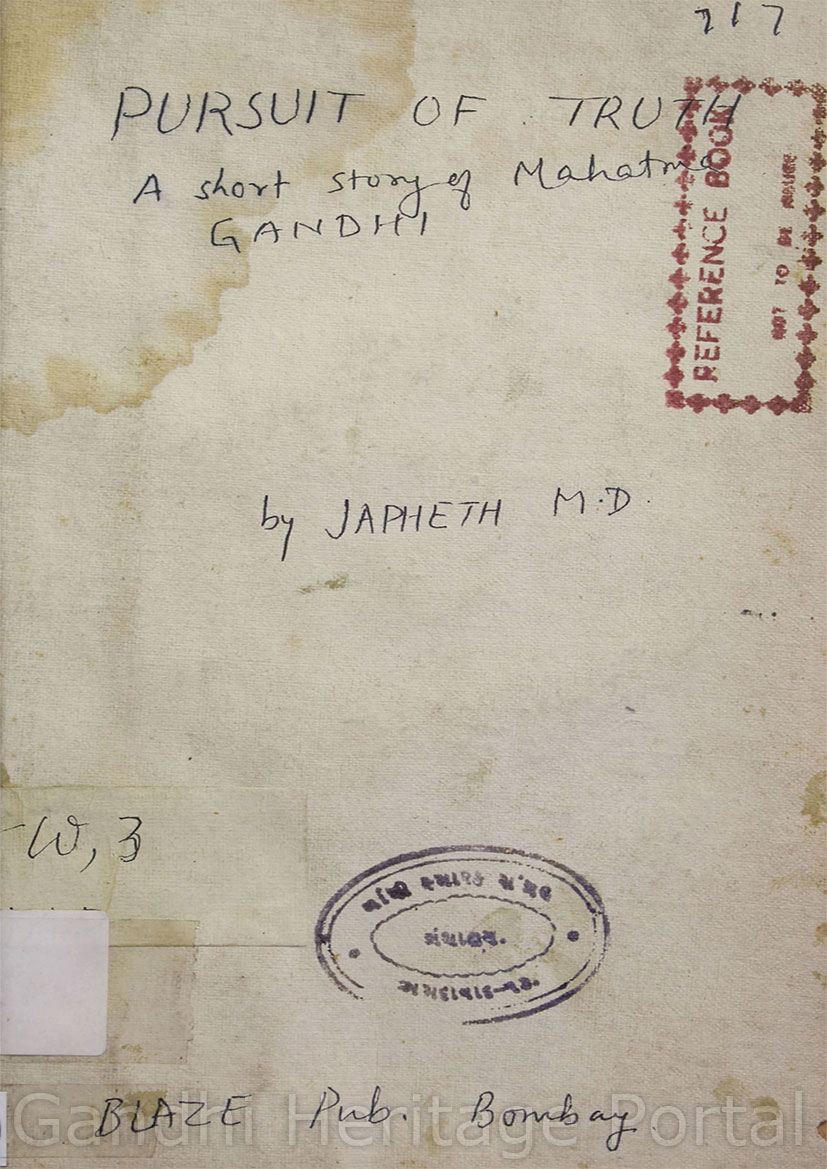 717
PURSUIT OF TRUTH
A short story of Mahatma
GANDHI
REFERENCE BOOK
NOT TO BE
by JAPHETH M.D.
W, 3
BLAZE Pub. Bombay.
Gandhi Heritage Portal